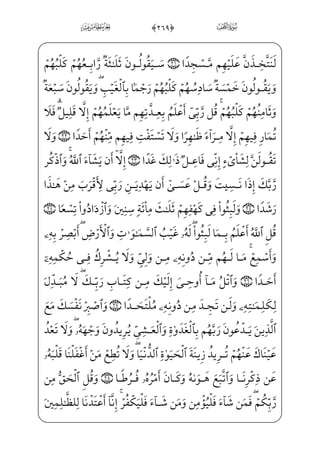 سُورَةُ الكَهْفِ ﴿٢٦٩﴾ الجُزْءُ الخَامِسَ عَشَرَ
لَنَتَّخِذَنَّ عَلَيْهِم مَّسْجِدًا ﴿٢١﴾ سَيَقُولُونَ ثَلَٰثَةٌ رَّابِعُهُمْ كَلْبُهُمْ
وَيَقُولُونَ خَمْسَةٌ سَادِسُهُمْ كَلْبُهُمْ رَجْمًۢا بِٱلْغَيْبِ ۖ وَيَقُولُونَ سَبْعَةٌ
وَثَامِنُهُمْ كَلْبُهُمْ ۚ قُل رَّبِّىٓ أَعْلَمُ بِعِدَّتِهِم مَّا يَعْلَمُهُمْ إِلَّا قَلِيلٌ ۗ فَلَا
تُمَارِ فِيهِمْ إِلَّا مِرَآءً ظَٰهِرًا وَلَا تَسْتَفْتِ فِيهِم مِّنْهُمْ أَحَدًا ﴿٢٢﴾ وَلَا
تَقُولَنَّ لِشَا۟ىْءٍ إِنِّى فَاعِلٌ ذَٰلِكَ غَدًا ﴿٢٣﴾ إِلَّآ أَن يَشَآءَ ٱللَّهُ ۚ وَٱذْكُر
رَّبَّكَ إِذَا نَسِيتَ وَقُلْ عَسَىٰٓ أَن يَهْدِيَنِ رَبِّى لِأَقْرَبَ مِنْ هَٰذَا
رَشَدًا ﴿٢٤﴾ وَلَبِثُوا۟ فِى كَهْفِهِمْ ثَلَٰثَ مِا۟ئَةٍ سِنِينَ وَٱزْدَادُوا۟ تِسْعًا ﴿٢٥﴾
قُلِ ٱللَّهُ أَعْلَمُ بِمَا لَبِثُوا۟ ۖ لَهُۥ غَيْبُ ٱلسَّمَٰوَٰتِ وَٱلْأَرْضِ ۖ أَبْصِرْ بِهِۦ
وَأَسْمِعْ ۚ مَا لَهُم مِّن دُونِهِۦ مِن وَلِىٍّ وَلَا يُشْرِكُ فِى حُكْمِهِۦٓ
أَحَدًا ﴿٢٦﴾ وَٱتْلُ مَآ أُوحِىَ إِلَيْكَ مِن كِتَابِ رَبِّكَ ۖ لَا مُبَدِّلَ
لِكَلِمَٰتِهِۦ وَلَن تَجِدَ مِن دُونِهِۦ مُلْتَحَدًا ﴿٢٧﴾ وَٱصْبِرْ نَفْسَكَ مَعَ
ٱلَّذِينَ يَدْعُونَ رَبَّهُم بِٱلْغَدَوٰةِ وَٱلْعَشِىِّ يُرِيدُونَ وَجْهَهُۥ ۖ وَلَا تَعْدُ
عَيْنَاكَ عَنْهُمْ تُرِيدُ زِينَةَ ٱلْحَيَوٰةِ ٱلدُّنْيَا ۖ وَلَا تُطِعْ مَنْ أَغْفَلْنَا قَلْبَهُۥ
عَن ذِكْرِنَا وَٱتَّبَعَ هَوَىٰهُ وَكَانَ أَمْرُهُۥ فُرُطًا ﴿٢٨﴾ وَقُلِ ٱلْحَقُّ مِن
رَّبِّكُمْ ۖ فَمَن شَآءَ فَلْيُؤْمِن وَمَن شَآءَ فَلْيَكْفُرْ ۚ إِنَّآ أَعْتَدْنَا لِلظَّٰلِمِينَ